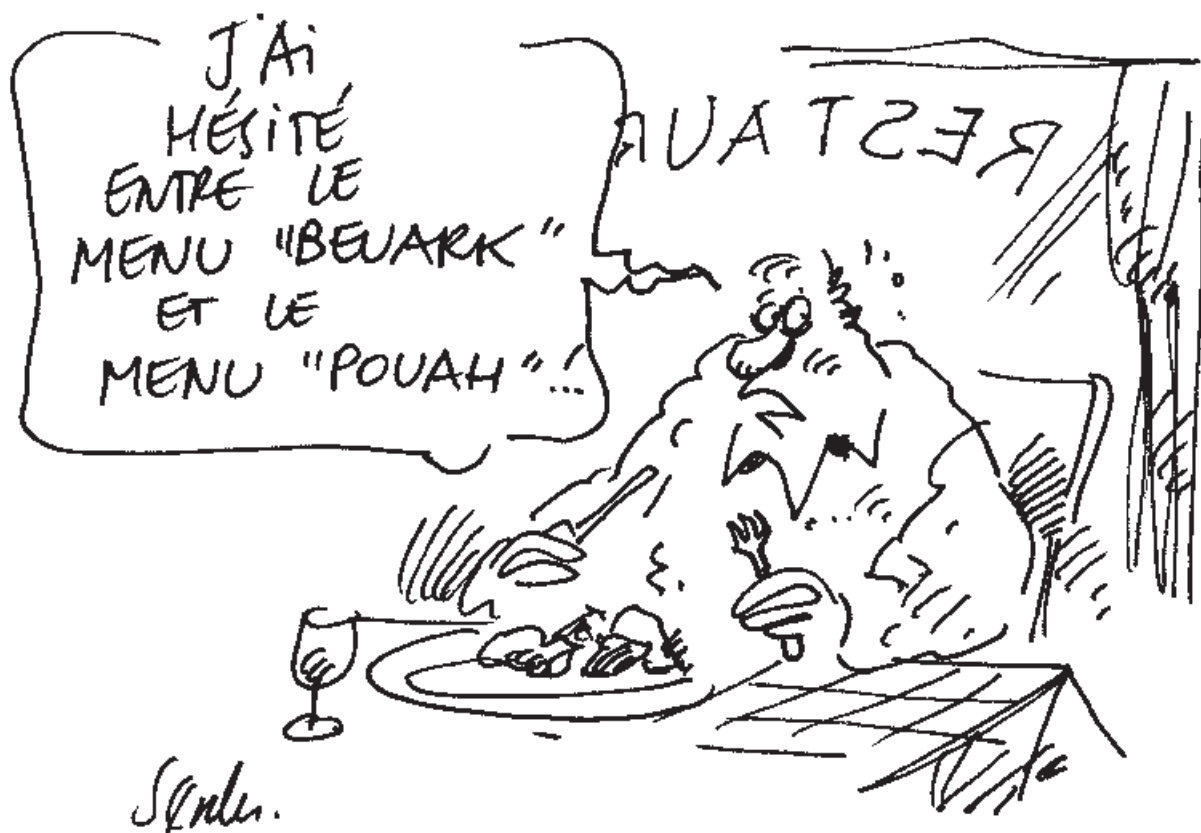 J'Ai
HÉSITÉ
ENTRE LE
MENU "BEUARK"
ET LE
MENU "POUAH"...
RESTAU